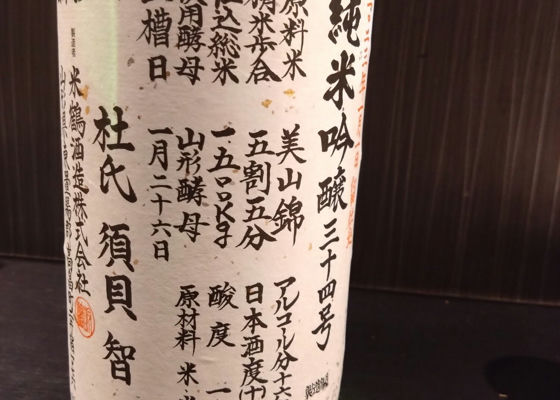 純米吟醸三十四号
原料米 美山錦 アルコール分十六
精米歩合 五割五分 日本酒度(十)
仕込総米 一五〇〇Kg 酸度 一
使用酵母 山形酵母 原材料 米・米
上槽日 一月二十六日
杜氏 須貝 智
製造者 米鶴酒造株式会社